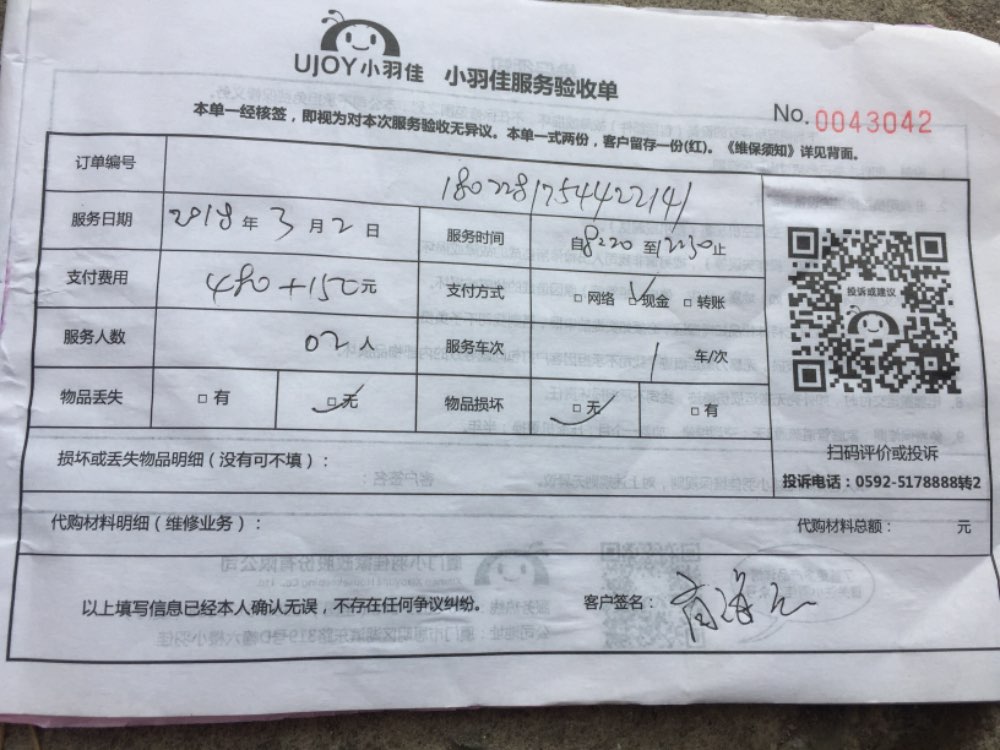 UJOY小羽佳 小羽佳服务验收单
No. 0043042
本单一经核签，即视为对本次服务验收无异议。本单一式两份，客户留存一份(红)。《维保须知》详见背面。
订单编号 1802281754422141
服务日期 2018 年 3 月 2 日 服务时间 自8:20 至12:30止
支付费用 480+150元 支付方式 □ 网络 □ 现金 □ 转账
服务人数 02 人 服务车次 1 车/次
物品丢失 □ 有 □ 无 物品损坏 □ 无 □ 有
投诉或建议
扫码评价或投诉
投诉电话：0592-5178888转2
损坏或丢失物品明细（没有可不填）：
代购材料明细（维修业务）： 代购材料总额： 元
以上填写信息已经本人确认无误，不存在任何争议纠纷。 客户签名：